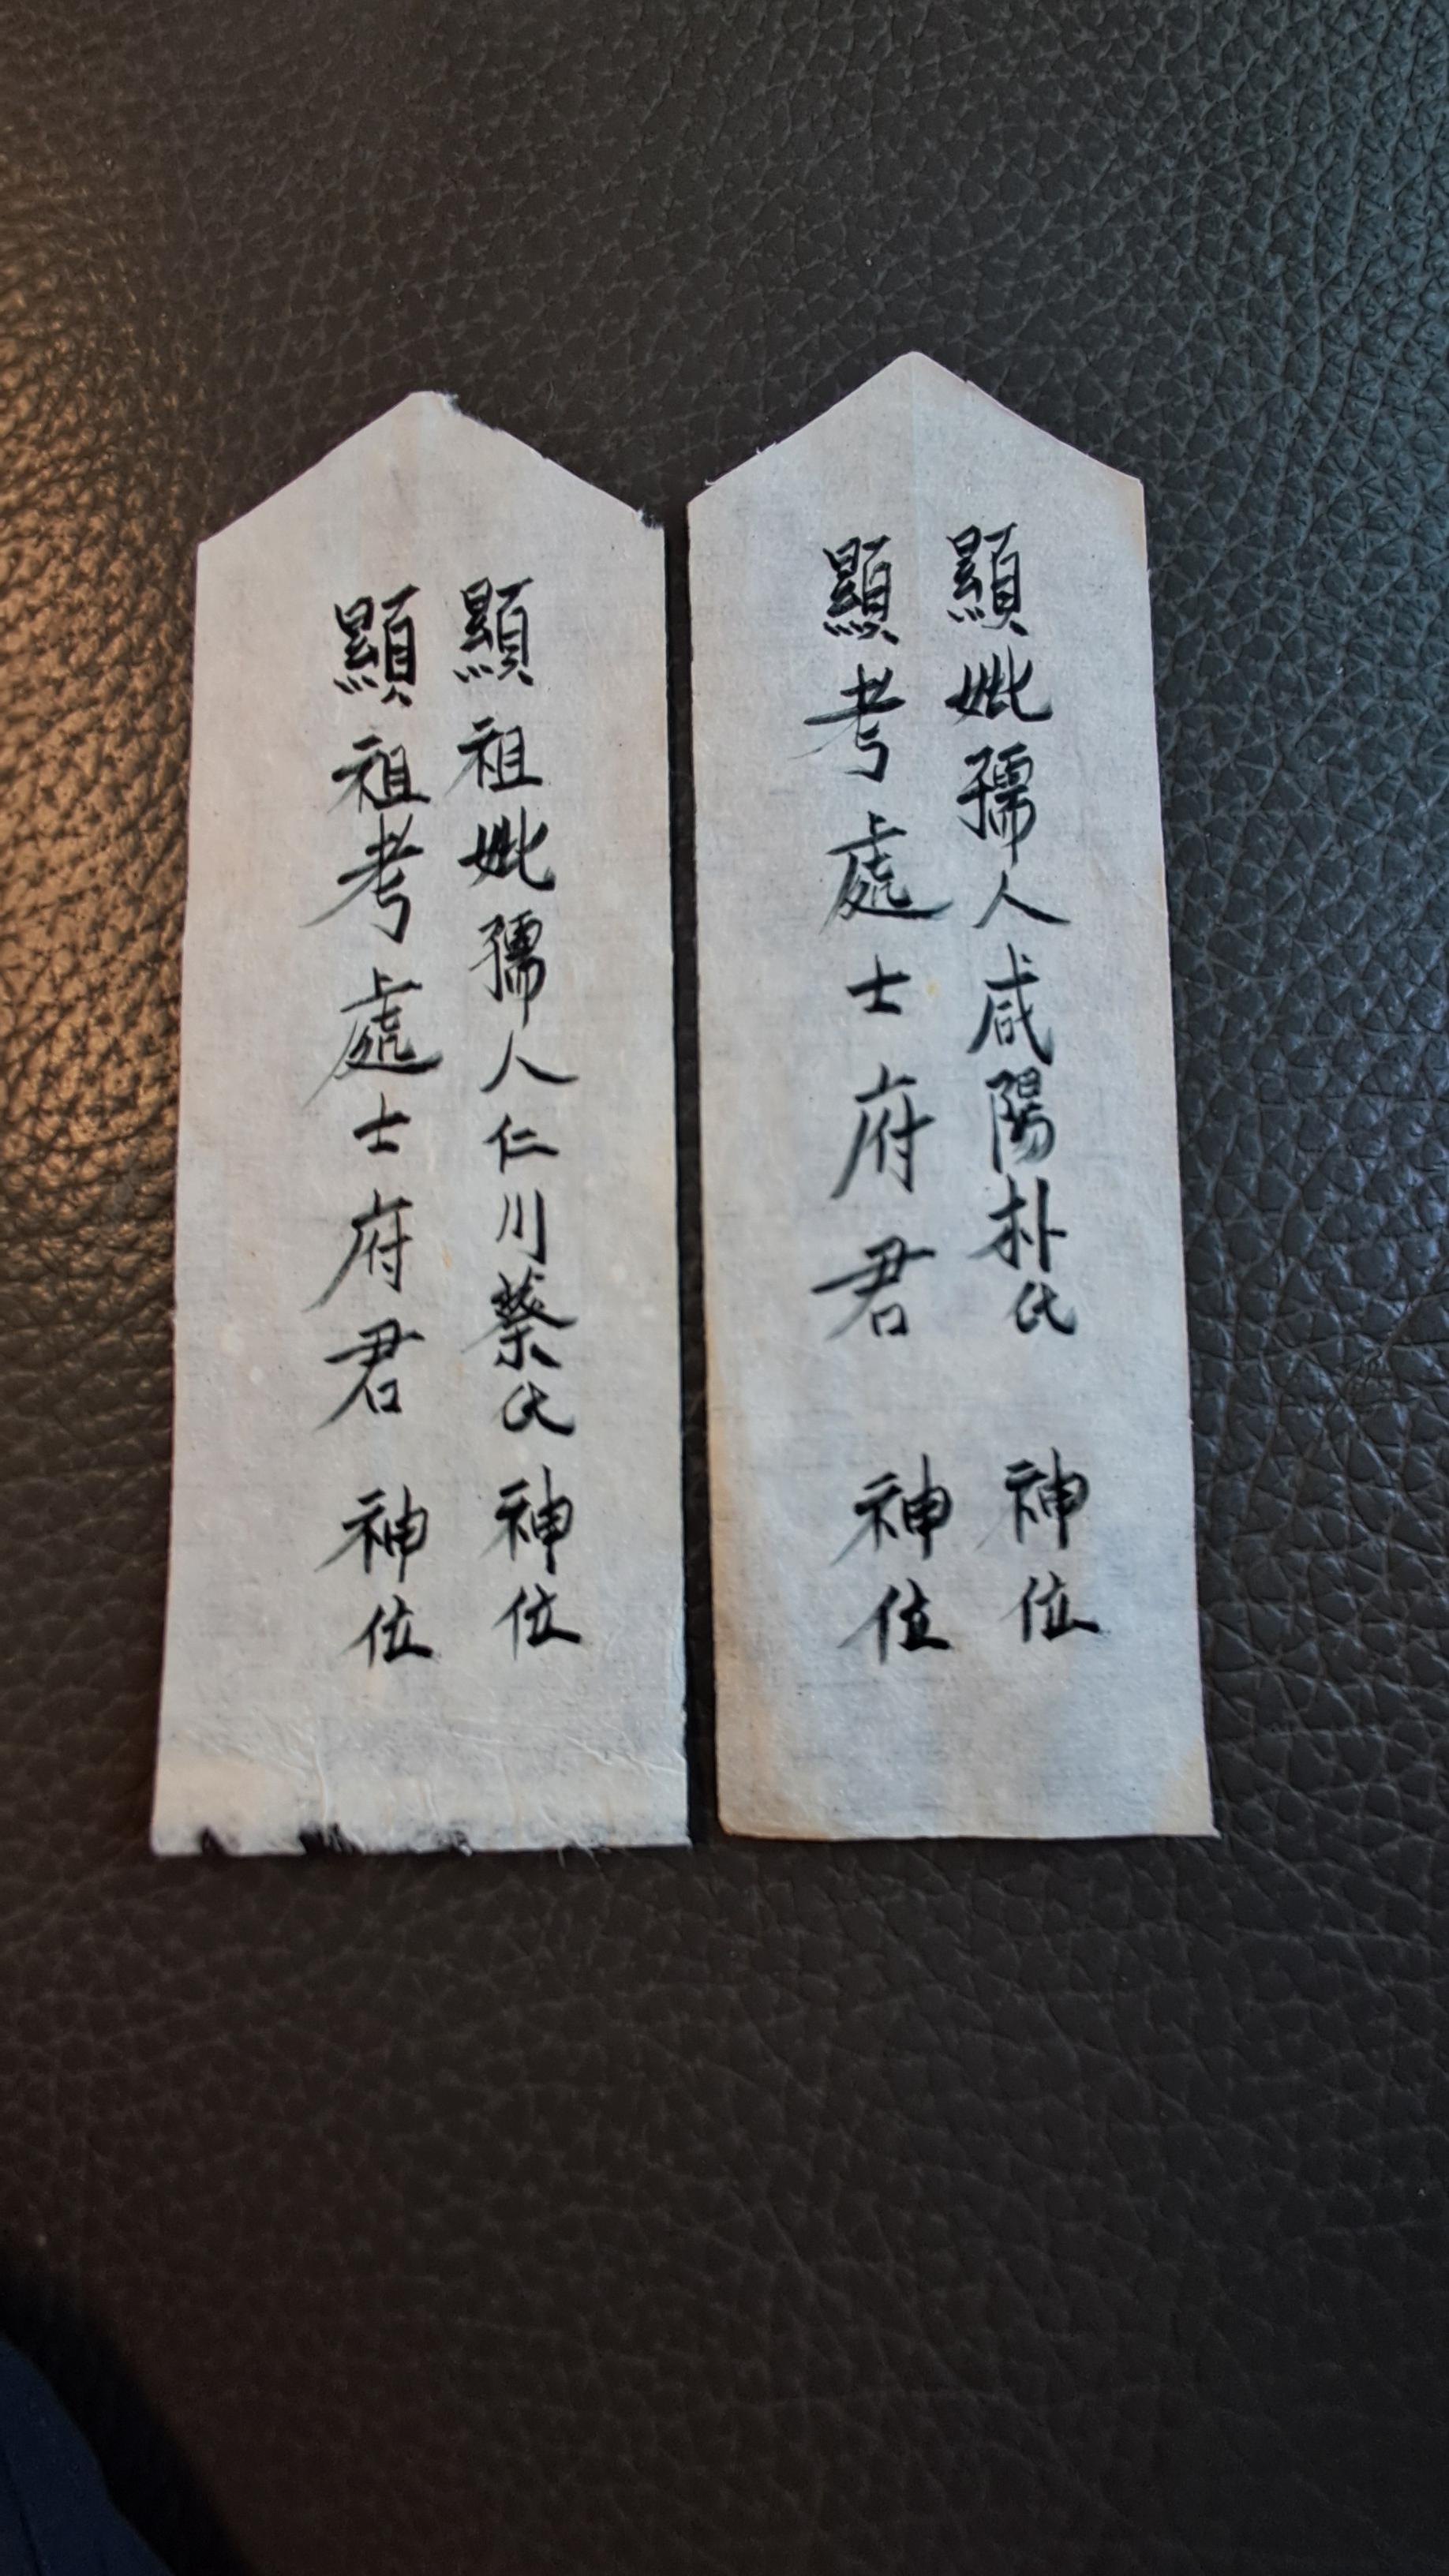 顯妣孺人咸陽朴氏 神位
顯考處士府君 神位
顯祖妣孺人仁川蔡氏 神位
顯祖考處士府君 神位